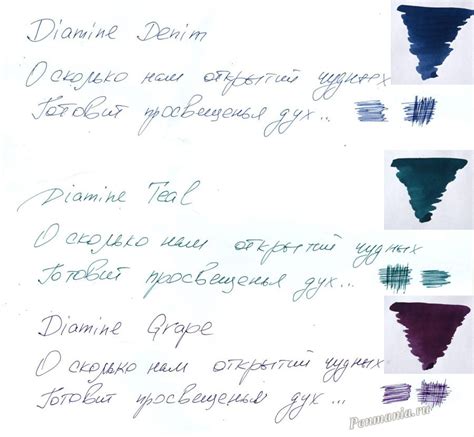 Diamine Denim
О сколько нам открытий чудных
Готовит просвещенья дух...
Diamine Teal
О сколько нам открытий чудных
Готовит просвещенья дух...
Diamine Grape
О сколько нам открытий чудных
Готовит просвещенья дух...
Penmania.ru